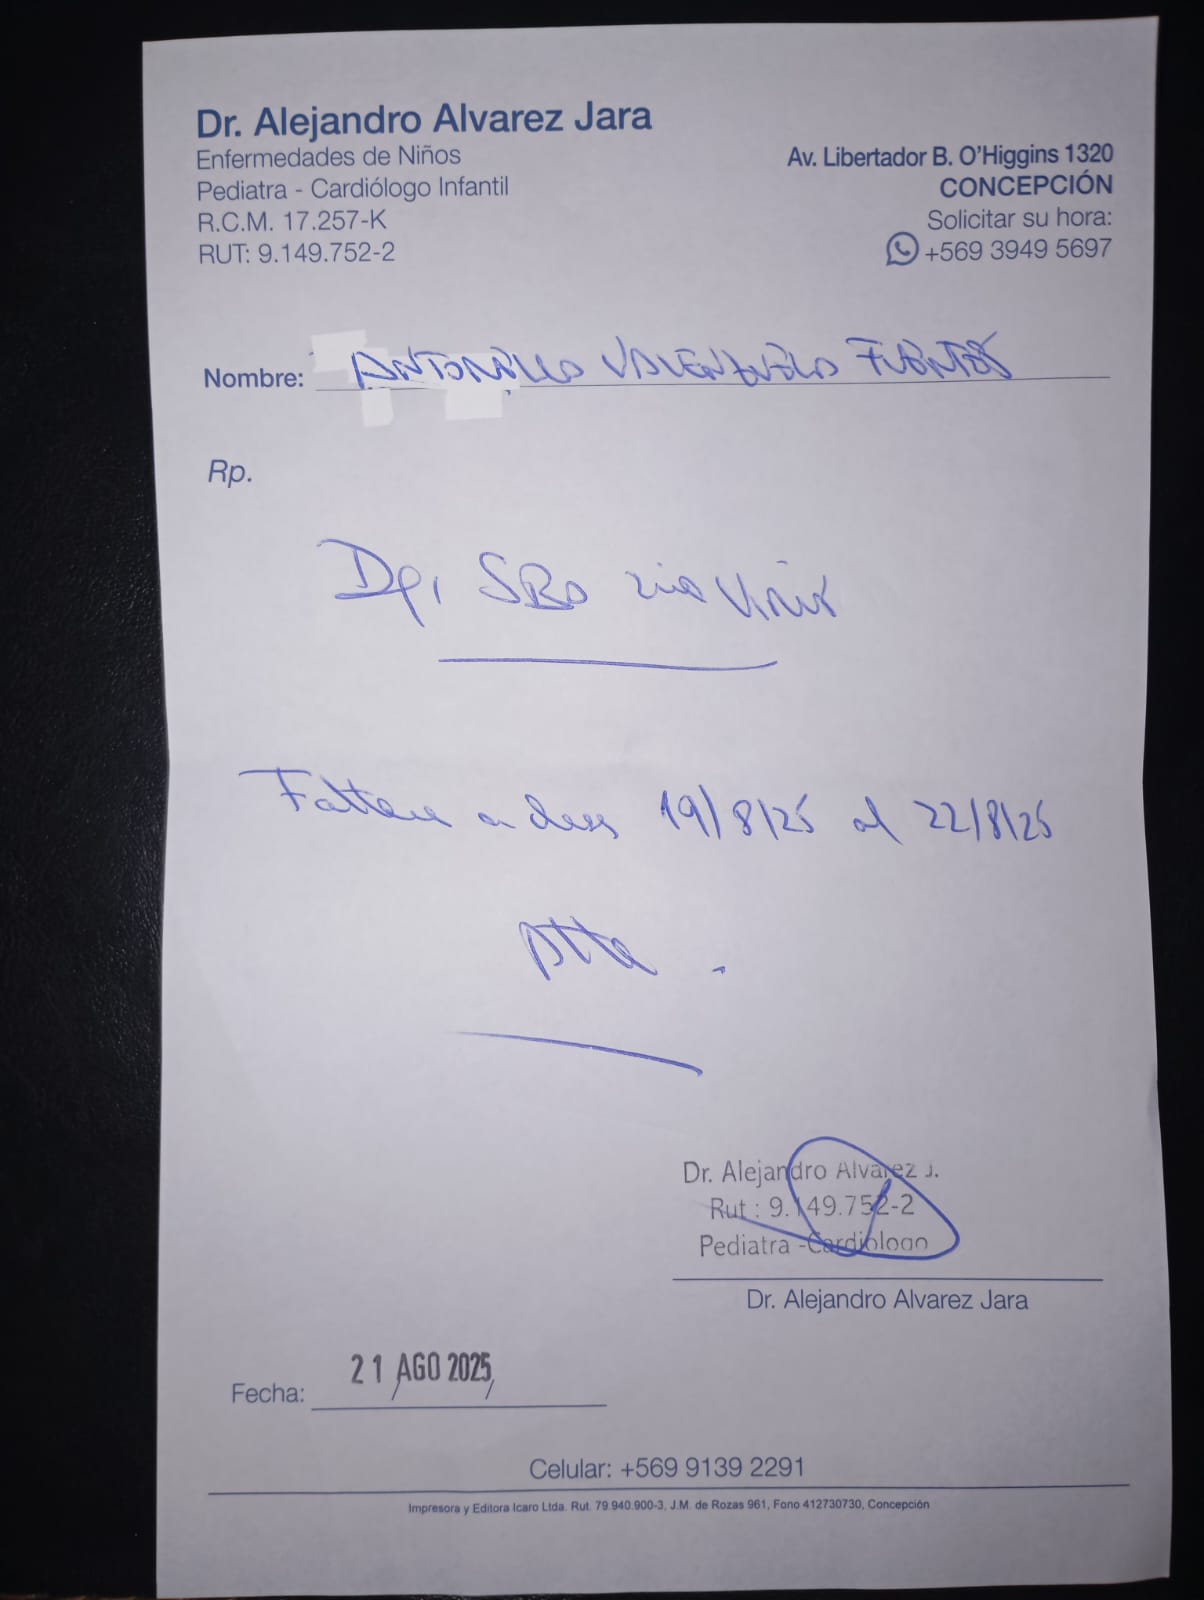 Dr. Alejandro Alvarez Jara
Enfermedades de Niños
Pediatra - Cardiólogo Infantil
R.C.M. 17.257-K
RUT: 9.149.752-2
Av. Libertador B. O'Higgins 1320
CONCEPCIÓN
Solicitar su hora:
+569 3949 5697
Nombre: VALENZUELA FUENTES
Rp.
SBO
a 19/8/25 al 22/8/25
Dr. Alejandro Alvarez J.
Rut : 9.149.752-2
Pediatra -Cardiologo
Dr. Alejandro Alvarez Jara
Fecha: 21 AGO 2025
Celular: +569 9139 2291
Impresora y Editora Icaro Ltda. Rut. 79.940.900-3, J.M. de Rozas 961, Fono 412730730, Concepción